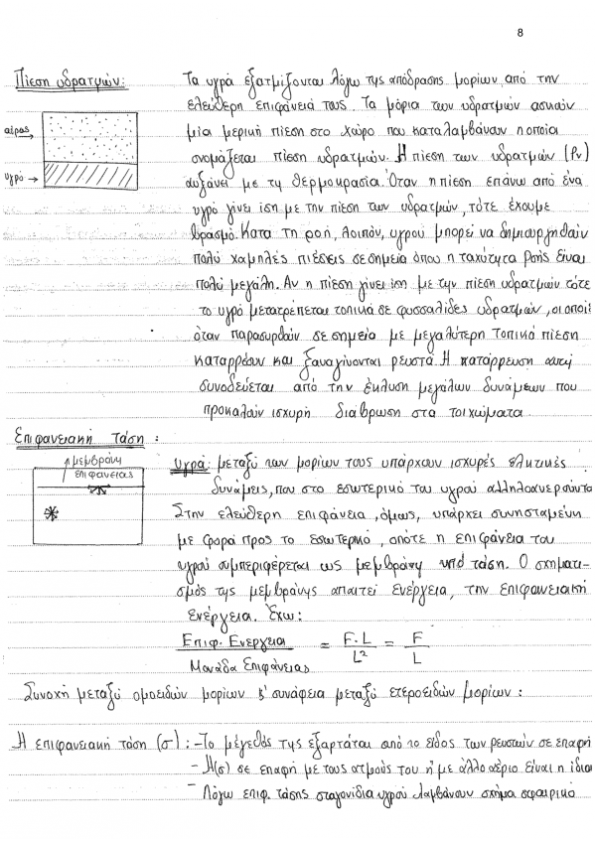 8
Πίεση υδρατμών:
Τα υγρά εξατμίζονται λόγω της απόδρασης μορίων από την
ελεύθερη επιφάνειά τους. Τα μόρια των υδρατμών ασκούν
αέρας
μία μερική πίεση στο χώρο που καταλαμβάνουν η οποία
ονομάζεται πίεση υδρατμών. Η πίεση των υδρατμών (Pv)
υγρό
αυξάνει με τη θερμοκρασία. Όταν η πίεση επάνω από ένα
υγρό γίνει ίση με την πίεση των υδρατμών, τότε έχουμε
βρασμό. Κατα τη ροή, λοιπόν, υγρού μπορεί να δημιουργηθούν
πολύ χαμηλές πιέσεις σε σημεία όπου η ταχύτητα ροής είναι
πολύ μεγάλη. Αν η πίεση γίνει ίση με την πίεση υδρατμών τότε
το υγρό μετατρέπεται τοπικά σε φυσσαλίδες υδρατμών, οι οποί
όταν παρασυρθούν σε σημείο με μεγαλύτερη τοπικό πίεση
καταρρέουν και ξαναγίνονται ρευστά. Η κατάρρευση αυτή
συνοδεύεται από την έκλυση μεγάλων δυνάμεων που
προκαλούν ισχυρή διάβρωση στα τοιχώματα.
Επιφανειακή τάση:
μεμβράνη
επιφανείας
Υγρά: μεταξύ των μορίων τους υπάρχουν ισχυρές ελκτικές
δυνάμεις, που στο εσωτερικό του υγρού αλληλοαναιρούντα
Στην ελεύθερη επιφάνεια, όμως, υπάρχει συνισταμένη
με φορά προς το εσωτερικό, οπότε η επιφάνεια του
υγρού συμπεριφέρεται ως μεμβράνη υπό τάση. Ο σχηματι-
σμός της μεμβράνης απαιτεί ενέργεια, την επιφανειακή
ενέργεια. Έχω:
Επιφ. Ενέργεια / Μονάδα Επιφάνειας = F.L / L² = F / L
Συνοχή μεταξύ ομοειδών μορίων & συνάφεια μεταξύ ετεροειδών μορίων:
Η επιφανειακή τάση (σ): - Το μέγεθός της εξαρτάται από το είδος των ρευστών σε επαφή
- Η (σ) σε επαφή με τους ατμούς του ή με άλλο αέριο είναι η ίδια
- Λόγω επιφ. τάσης σταγονίδια υγρού λαμβάνουν σχήμα σφαιρικό